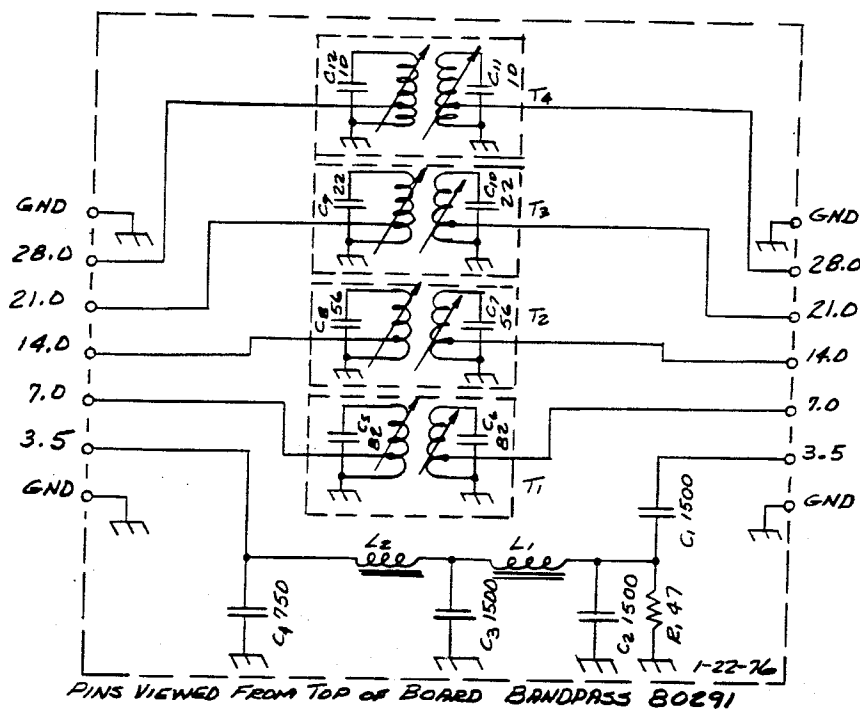 C12 10
C11 10
T4
C9 22
C10 22
T3
C8 56
C7 56
T2
C5 82
C6 82
T1
GND
28.0
21.0
14.0
7.0
3.5
GND
GND
28.0
21.0
14.0
7.0
3.5
GND
C1 1500
L2
L1
C4 750
C3 1500
C2 1500
R1 47
1-22-76
PINS VIEWED FROM TOP OF BOARD BANDPASS 80291